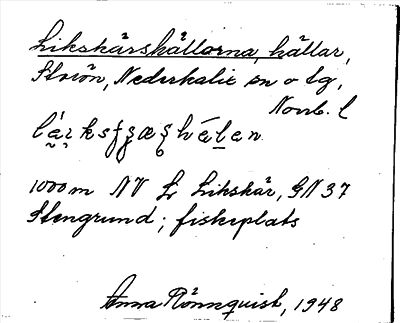 Likskärskällorna, källar,
Storön, Nederkalix sn o tg,
Norrb. l
1000 m NV Lr Likskär, GN 37
Stengrund; fiskeplats
Anna Rönnquist, 1948